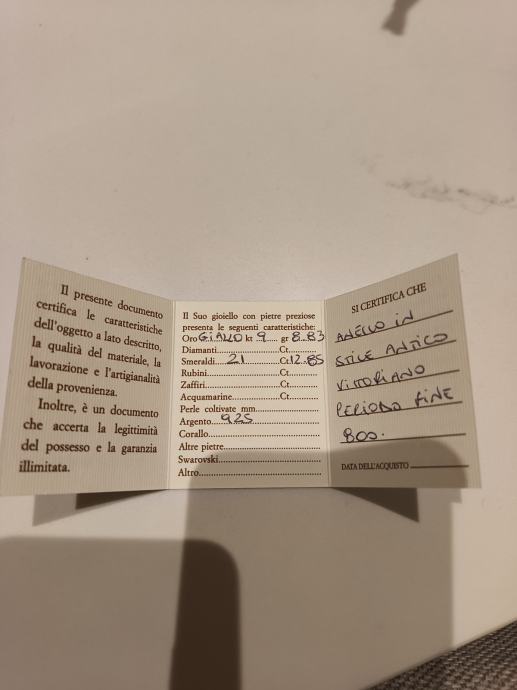 Il presente documento
certifica le caratteristiche
dell'oggetto a lato descritto,
la qualità del materiale, la
lavorazione e l'artigianalità
della provenienza.
Inoltre, è un documento
che accerta la legittimità
del possesso e la garanzia
illimitata.
Il Suo gioiello con pietre preziose
presenta le seguenti caratteristiche:
Oro GIALLO kt 9 gr 8.83
Diamanti Ct.
Smeraldi 21 Ct. 12.85
Rubini Ct.
Zaffiri Ct.
Acquamarine Ct.
Perle coltivate mm.
Argento 925
Corallo
Altre pietre
Swarovski
Altro
SI CERTIFICA CHE
ANELLO IN
STILE ANTICO
VITTORIANO
PERIODO FINE
800.
DATA DELL'ACQUISTO